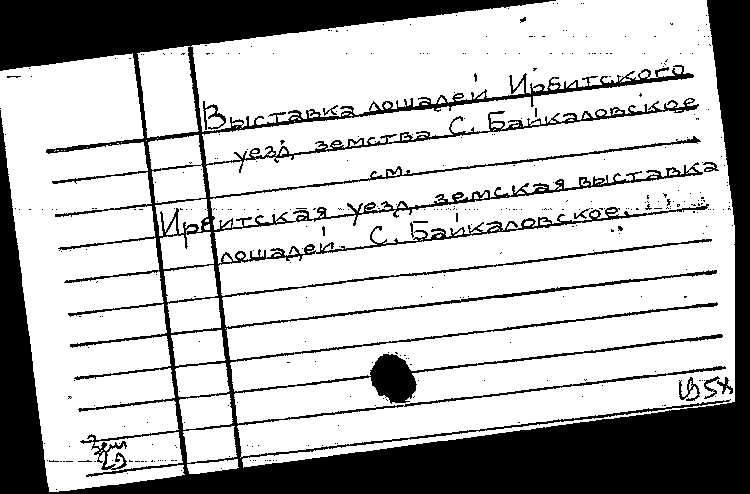 Выставка лошадей Ирбитского
уезд. земства С. Байкаловское
см.
Ирбитская уезд. земская выставка
лошадей. С. Байкаловское.
Зем